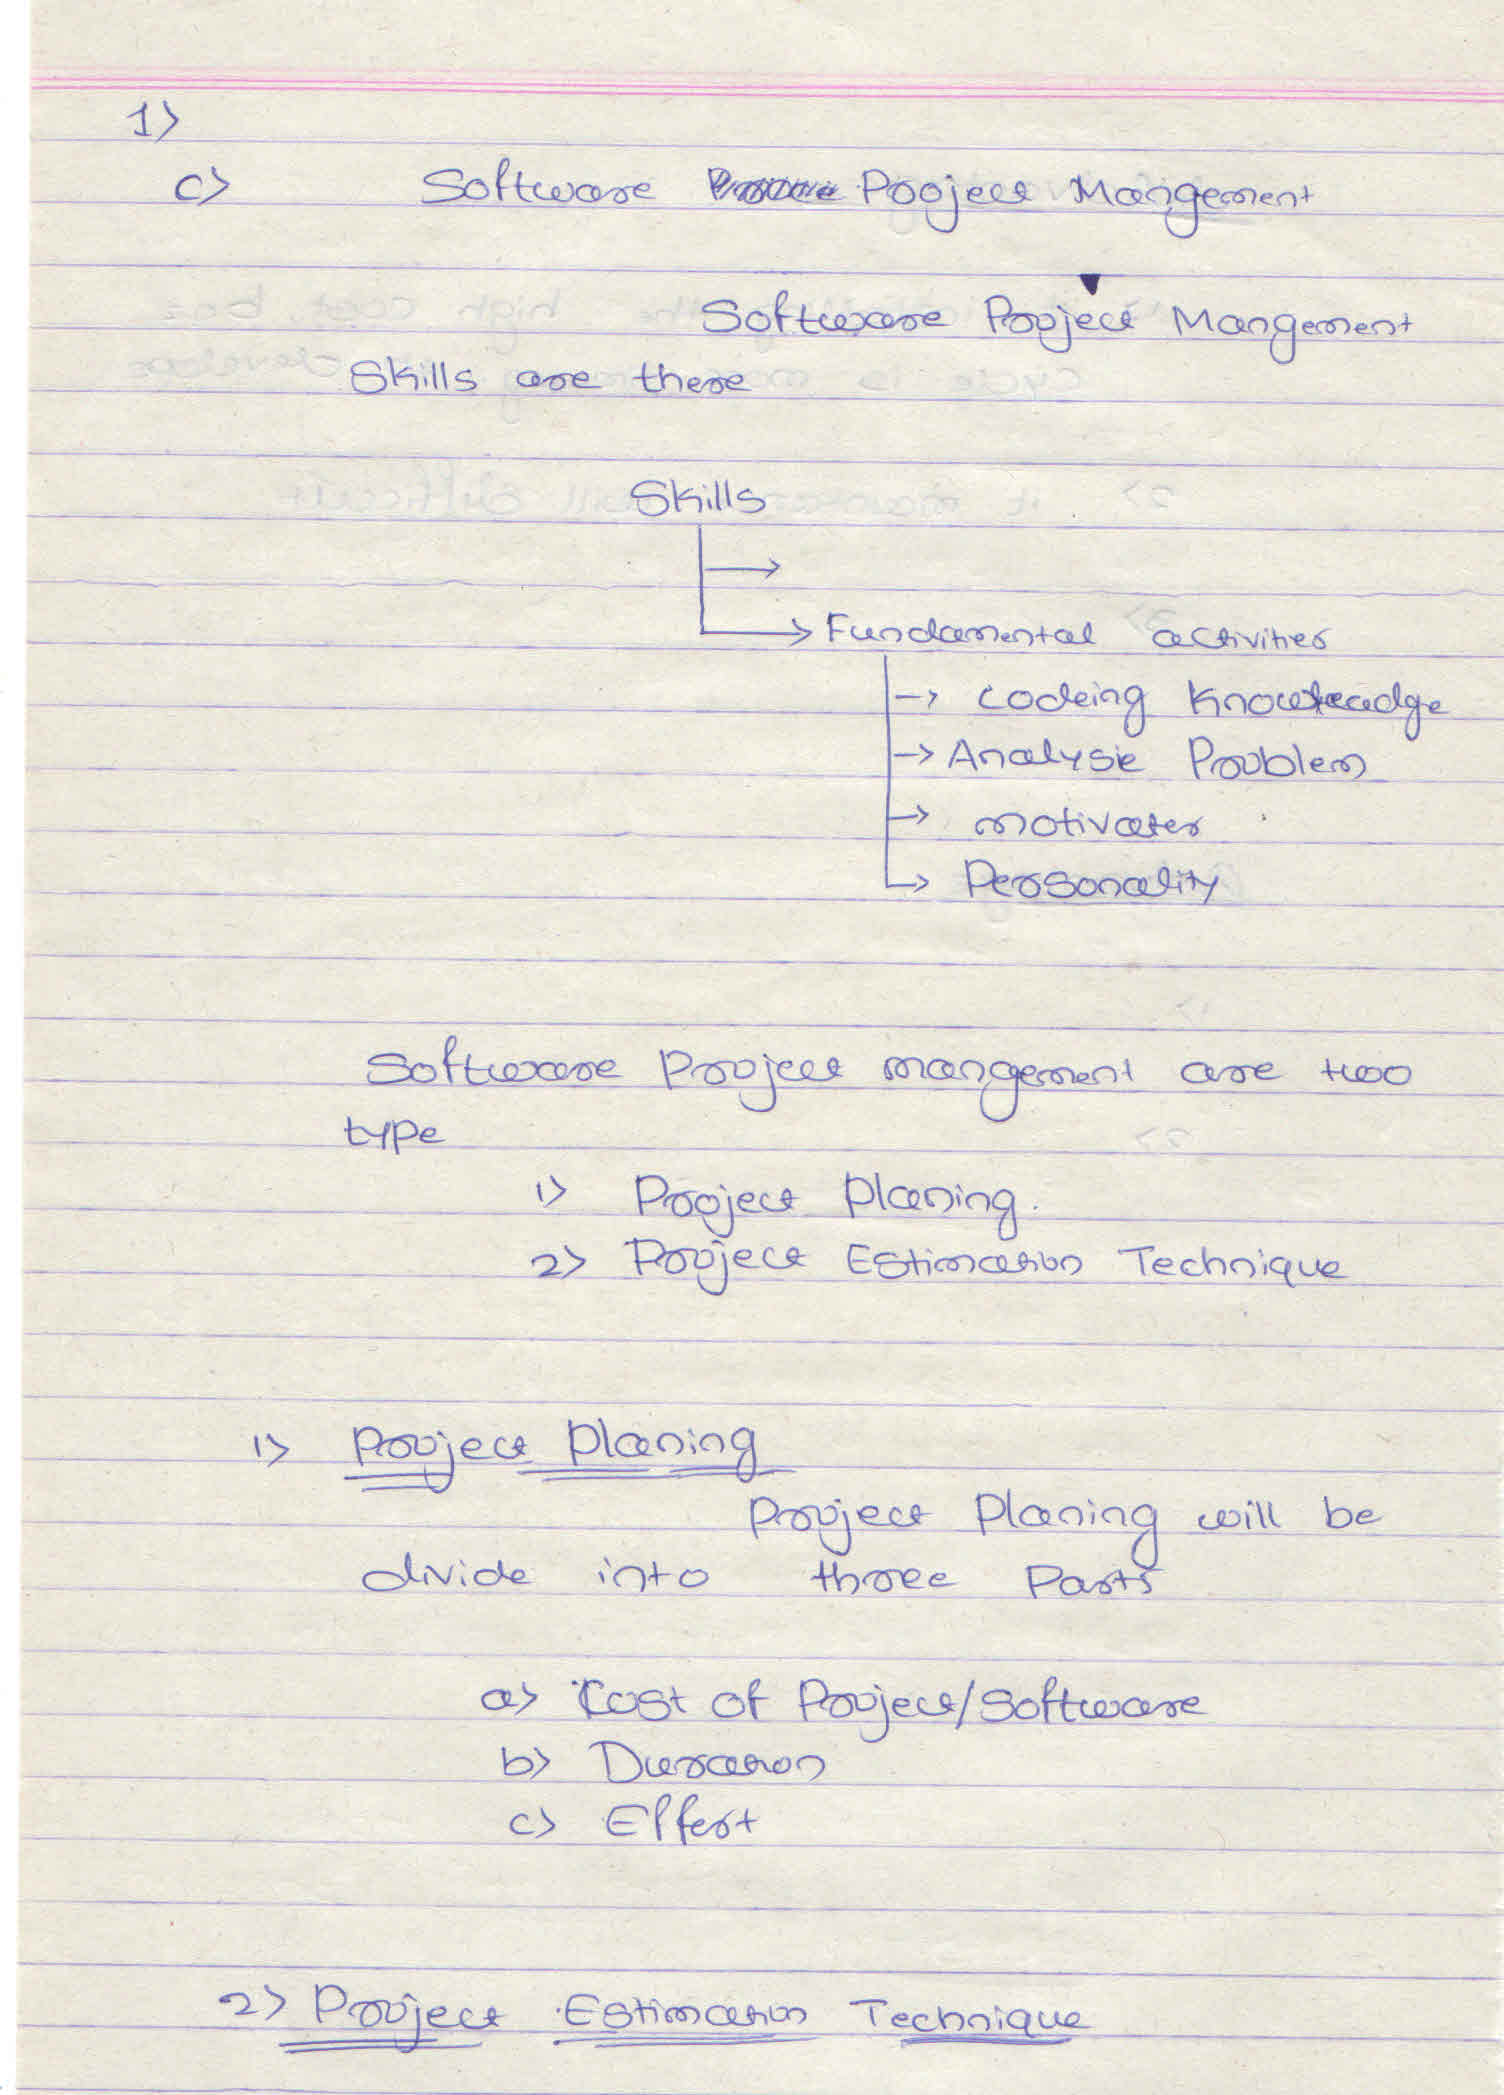 1>
c> Software Project Mangement
Software Project Mangement
Skills are there
Skills
→
→ Fundamental activities
→ Codeing Knowledge
→ Analysie Problem
→ motivater
→ Personality
Software Project mangement are two
type
1> Project Planing.
2> Project Estimation Technique
1> Project Planing
Project Planing will be
divide into three Parts
a> Cost of Project/Software
b> Duration
c> Effert
2> Project Estimation Technique